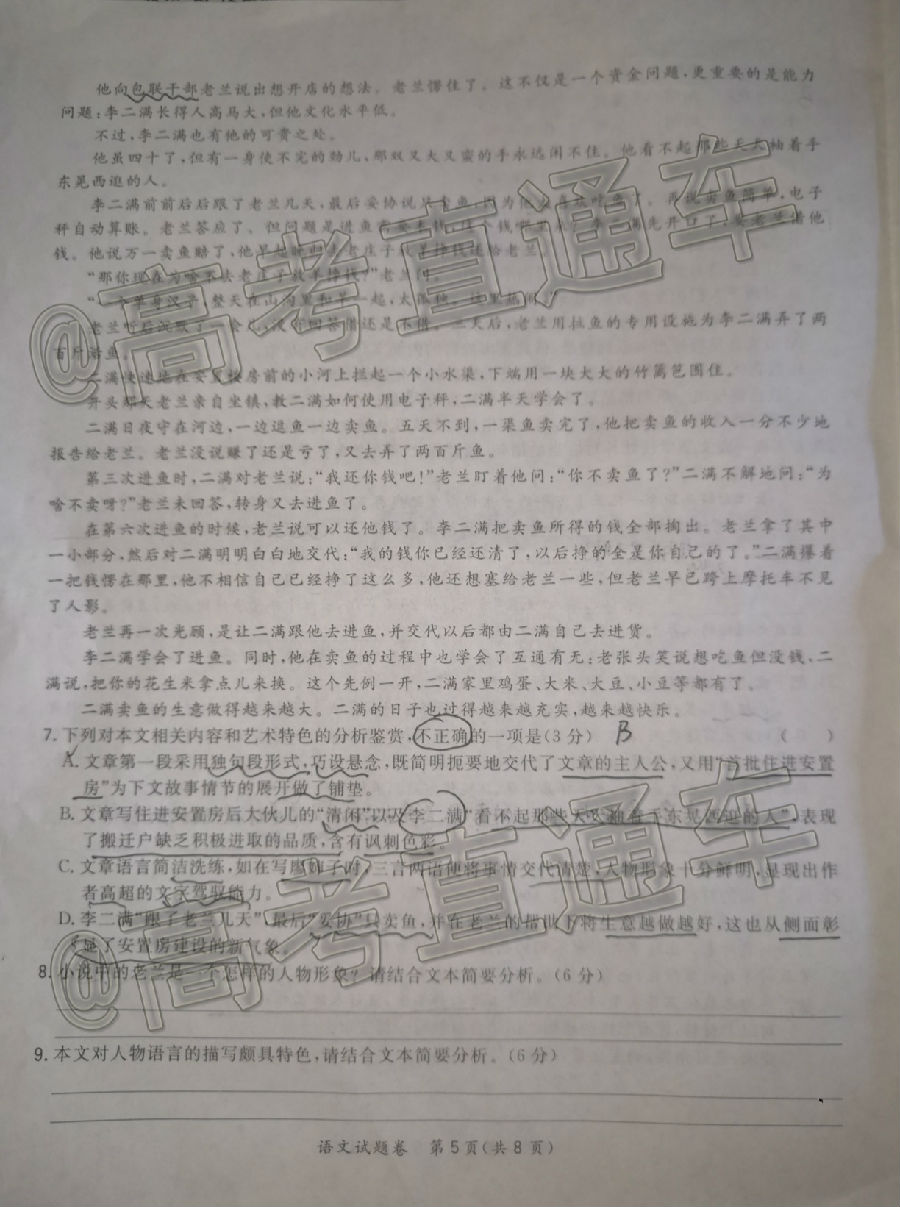 他向包联干部老兰说出想开店的想法。老兰愣住了。这不仅是一个资金问题,更重要的是能力
问题:李二满长得人高马大,但他文化水平低。
不过,李二满也有他的可贵之处。
他虽四十了,但有一身使不完的劲儿,那双又大又蛮的手永远闲不住。他看不起那些天天袖着手
东晃西逛的人。
李二满前前后后跟了老兰几天,最后妥协说只卖鱼,因为他
再说卖鱼简单,电子
秤自动算账。老兰答应了。但问题是进鱼
先开口了:要老兰借他
钱。他说万一卖鱼赔了,他
老庄子
挣钱还给老兰。
“那你现在为啥不去老庄子放羊挣钱?”老兰问。
“一个单身汉子,整天在山沟里和羊一起,太孤独。这里
老兰听后沉默了一会儿,没有回答借还是不借。三天后,老兰用拉鱼的专用设施为李二满弄了两
百斤活鱼。
二满便迅速在安置楼房前的小河上拦起一个小水渠,下端用一块大大的竹篱笆围住。
开头那天老兰亲自坐镇,教二满如何使用电子秤,二满半天学会了。
二满日夜守在河边,一边逗鱼一边卖鱼。五天不到,一渠鱼卖完了,他把卖鱼的收入一分不少地
报告给老兰。老兰没说赚了还是亏了,又去弄了两百斤鱼。
第三次进鱼时,二满对老兰说:“我还你钱吧!”老兰盯着他问:“你不卖鱼了?”二满不解地问:“为
啥不卖呀?”老兰未回答,转身又去进鱼了。
在第六次进鱼的时候,老兰说可以还他钱了。李二满把卖鱼所得的钱全部掏出。老兰拿了其中
一小部分,然后对二满明明白白地交代:“我的钱你已经还清了,以后挣的全是你自己的了。”二满攥着
一把钱愣在那里,他不相信自己已经挣了这么多,他还想塞给老兰一些,但老兰早已跨上摩托车不见
了人影。
老兰再一次光顾,是让二满跟他去进鱼,并交代以后都由二满自己去进货。
李二满学会了进鱼。同时,他在卖鱼的过程中也学会了互通有无:老张头笑说想吃鱼但没钱,二
满说,把你的花生米拿点儿来换。这个先例一开,二满家里鸡蛋、大米、大豆、小豆等都有了。
二满卖鱼的生意做得越来越大。二满的日子也过得越来越充实,越来越快乐。
7.下列对本文相关内容和艺术特色的分析鉴赏,不正确的一项是(3分) B ( )
A.文章第一段采用独句段形式,巧设悬念,既简明扼要地交代了文章的主人公,又用“首批住进安置
房”为下文故事情节的展开做了铺垫。
B.文章写住进安置房后大伙儿的“清闲”以及李二满“看不起那些天天袖着手东晃西逛的人”,表现
了搬迁户缺乏积极进取的品质,含有讽刺色彩。
C.文章语言简洁洗练,如在写嫂婶子时,三言两语便将事情交代清楚,人物形象十分鲜明,显现出作
者高超的文字驾驭能力。
D.李二满“跟了老兰几天”,最后“妥协”只卖鱼,并在老兰的帮助下将生意越做越好,这也从侧面彰
显了安置房建设的新气象。
8.小说中的老兰是一个怎样的人物形象?请结合文本简要分析。(6分)
9.本文对人物语言的描写颇具特色,请结合文本简要分析。(6分)
语文试题卷 第5页(共8页)
@高考直通车
@高考直通车